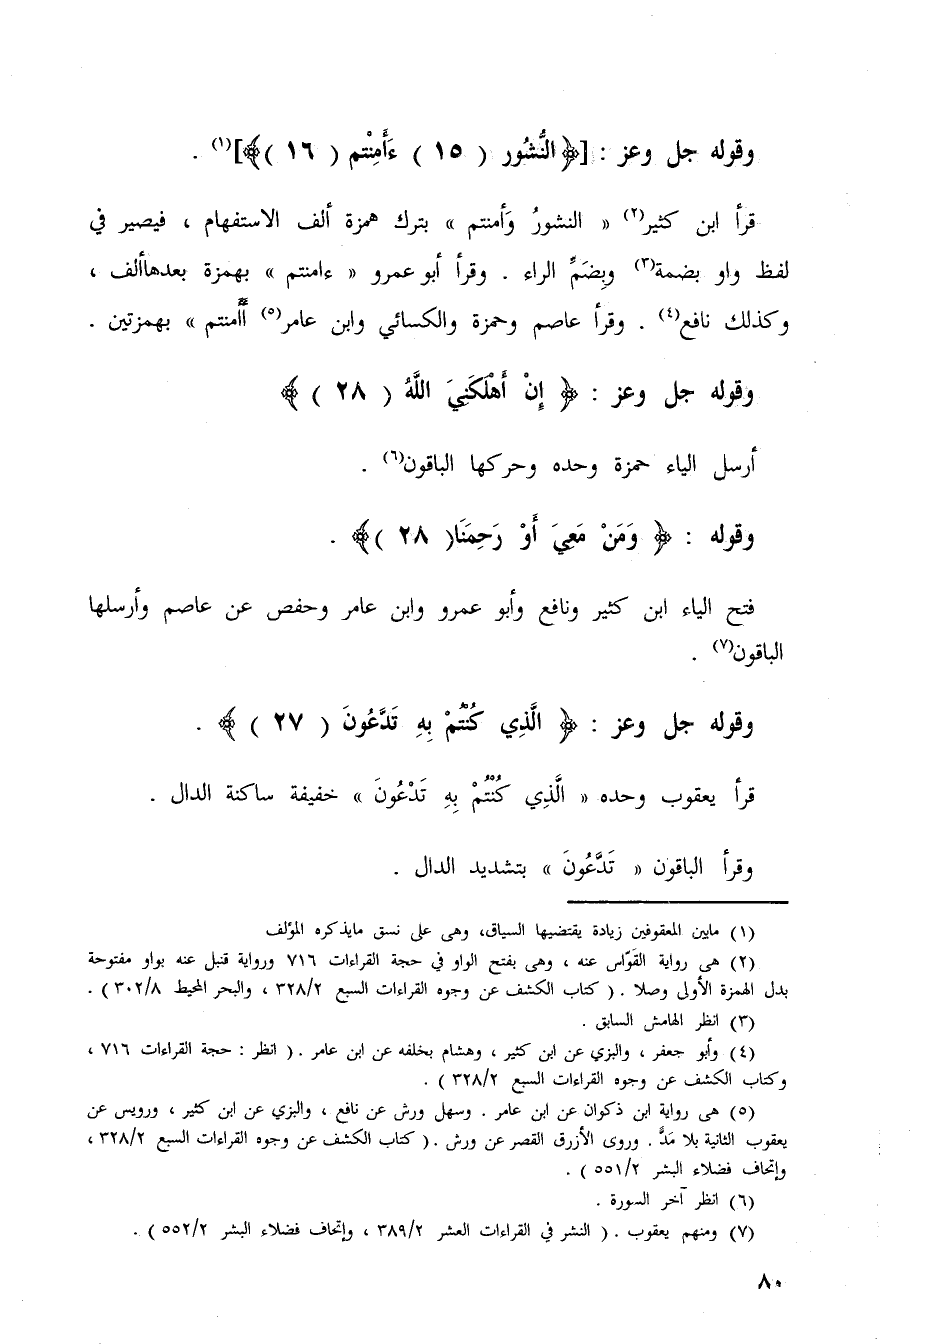 وقوله جل وعز : [﴿ النُّشُور ( ١٥ ) ءَأَمِنْتم ( ١٦ )﴾](١) .
قرأ ابن كثير(٢) « النشورُ وَأمنتم » بترك همزة ألف الاستفهام ، فيصير في
لفظ واو بضمة(٣) وبِضَمِّ الراء . وقرأ أبو عمرو « ءامنتم » بهمزة بعدهاألف ،
وكذلك نافع(٤) . وقرأ عاصم وحمزة والكسائي وابن عامر(٥) أَأَمنتم » بهمزتين .
وقوله جل وعز : ﴿ إِنْ أَهْلَكَنِيَ اللَّهُ ( ٢٨ ) ﴾
أرسل الياء حمزة وحده وحركها الباقون(٦) .
وقوله : ﴿ وَمَنْ مَعِيَ أَوْ رَحِمَنَا( ٢٨ )﴾ .
فتح الياء ابن كثير ونافع وأبو عمرو وابن عامر وحفص عن عاصم وأرسلها
الباقون(٧) .
وقوله جل وعز : ﴿ الَّذِي كُنْتُمْ بِهِ تَدَّعُونَ ( ٢٧ ) ﴾ .
قرأ يعقوب وحده « الَّذِي كُنْتُمْ بِهِ تَدْعُونَ » خفيفة ساكنة الدال .
وقرأ الباقون « تَدَّعُونَ » بتشديد الدال .
(١) مابين المعقوفين زيادة يقتضيها السياق، وهى على نسق مايذكره المؤلف
(٢) هى رواية القَوّاس عنه ، وهى بفتح الواو في حجة القراءات ٧١٦ ورواية قنبل عنه بواو مفتوحة
بدل الهمزة الأولى وصلا . ( كتاب الكشف عن وجوه القراءات السبع ٣٢٨/٢ ، والبحر المحيط ٣٠٢/٨ ) .
(٣) انظر الهامش السابق .
(٤) وأبو جعفر ، والبزي عن ابن كثير ، وهشام بخلفه عن ابن عامر . ( انظر : حجة القراءات ٧١٦ ،
وكتاب الكشف عن وجوه القراءات السبع ٣٢٨/٢ ) .
(٥) هى رواية ابن ذكوان عن ابن عامر . وسهل ورش عن نافع ، والبزي عن ابن كثير ، ورويس عن
يعقوب الثانية بلا مَدَّ . وروى الأزرق القصر عن ورش . ( كتاب الكشف عن وجوه القراءات السبع ٣٢٨/٢ ،
وإتحاف فضلاء البشر ٥٥١/٢ ) .
(٦) انظر آخر السورة .
(٧) ومنهم يعقوب . ( النشر في القراءات العشر ٣٨٩/٢ ، وإتحاف فضلاء البشر ٥٥٢/٢ ) .
٨٠